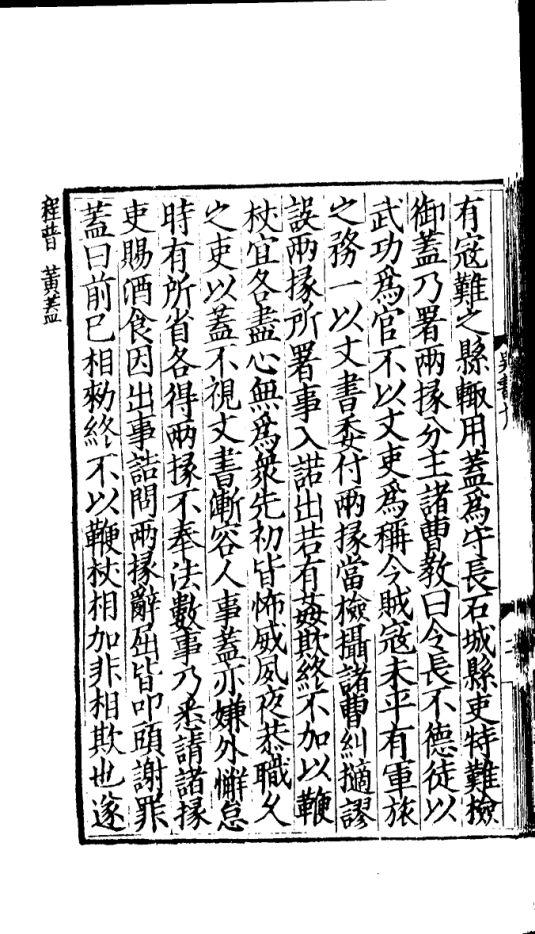 有寇難之縣輙用蓋爲守長石城縣吏特難檢
御蓋乃署兩掾分主諸曹教曰令長不德徒以
武功爲官不以文吏爲稱今賊寇未平有軍旅
之務一以文書委付兩掾當檢攝諸曹糾擿謬
誤兩掾所署事入諾出若有姦欺終不加以鞭
杖宜各盡心無爲衆先初皆怖威夙夜恭職久
之吏以蓋不視文書漸容人事蓋亦嫌外懈怠
時有所省各得兩掾不奉法數事乃悉請諸掾
吏賜酒食因出事詰問兩掾辭屈皆叩頭謝罪
蓋曰前已相勑終不以鞭杖相加非相欺也遂
程普 黃蓋